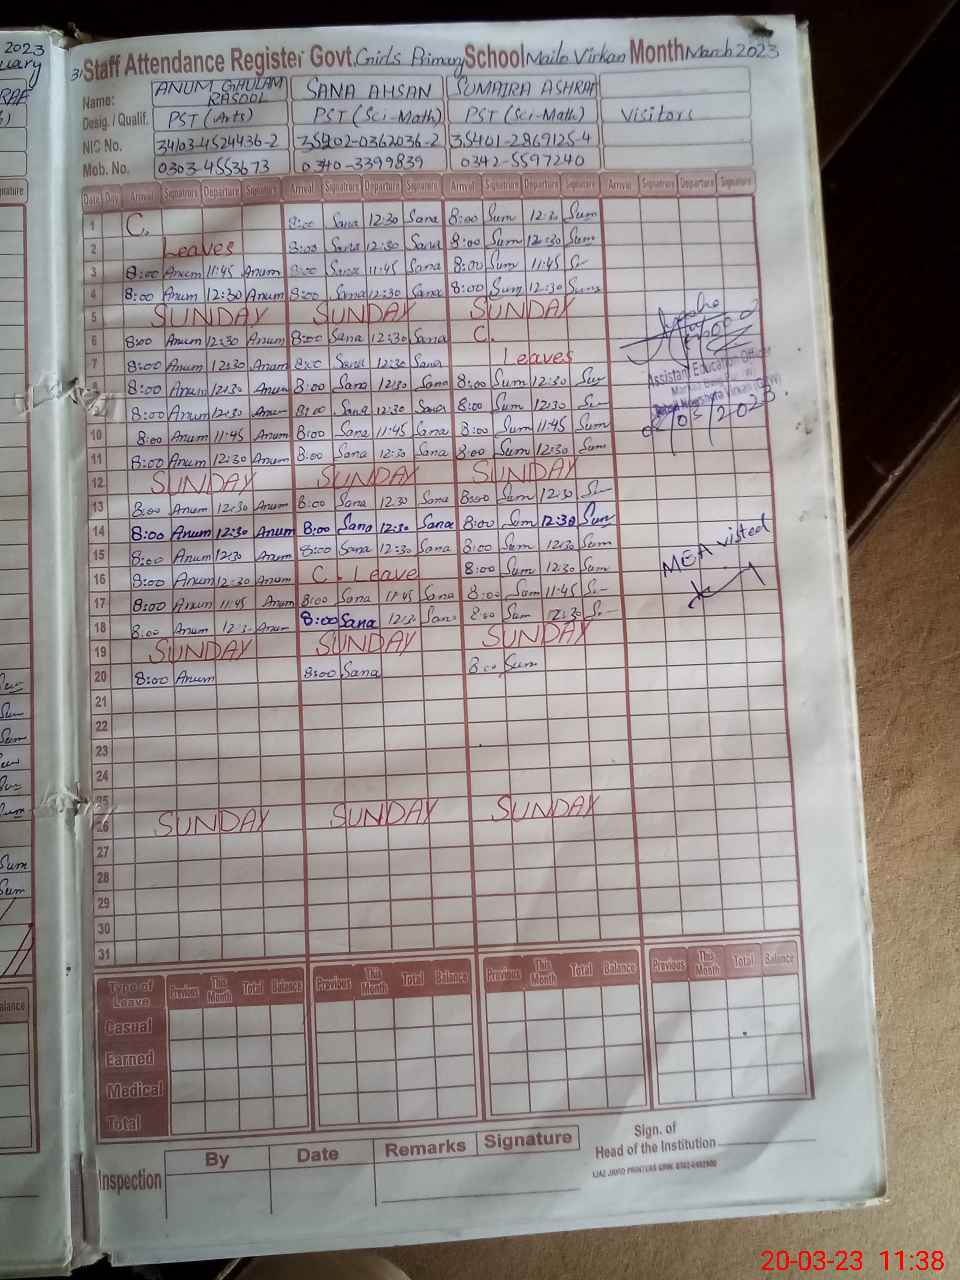 2023
31 Staff Attendance Register Govt. Girls Primary School Mailo Virkan Month March 2023
Name: ANUM GHULAM RASOOL SANA AHSAN SUMAIRA ASHRAF
Desig. / Qualif. PST (Arts) PST (Sci-Math) PST (Sci-Math) Visitors
NIC No. 34103-4524436-2 35202-0362036-2 35401-2869125-4
Mob. No. 0303-4553673 0340-3399839 0342-5597240
Date Day Arrival Signature Departure Signature Arrival Signature Departure Signature Arrival Signature Departure Signature Arrival Signature Departure Signature
1 C. 8:00 Sana 12:30 Sana 8:00 Sum 12:30 Sum
2 Leaves 8:00 Sana 12:30 Sana 8:00 Sum 12:30 Sum
3 8:00 Anum 11:45 Anum 8:00 Sana 11:45 Sana 8:00 Sum 11:45
4 8:00 Anum 12:30 Anum 8:00 Sana 12:30 Sana 8:00 Sum 12:30 Sum
5 SUNDAY SUNDAY SUNDAY
6 8:00 Anum 12:30 Anum 8:00 Sana 12:30 Sana C.
7 8:00 Anum 12:30 Anum 8:00 Sana 12:30 Sana Leaves
8:00 Anum 12:30 Anum 8:00 Sana 12:30 Sana 8:00 Sum 12:30 Sum
8:00 Anum 12:30 Anum 8:00 Sana 12:30 Sana 8:00 Sum 12:30
10 8:00 Anum 11:45 Anum 8:00 Sana 11:45 Sana 8:00 Sum 11:45 Sum
11 8:00 Anum 12:30 Anum 8:00 Sana 12:30 Sana 8:00 Sum 12:30
12 SUNDAY SUNDAY SUNDAY
13 8:00 Anum 12:30 Anum 8:00 Sana 12:30 Sana 8:00 Sum 12:30
14 8:00 Anum 12:30 Anum 8:00 Sana 12:30 Sana 8:00 Sum 12:30 Sum
15 8:00 Anum 12:30 Anum 8:00 Sana 12:30 Sana 8:00 Sum 12:30 Sum
16 8:00 Anum 12:30 Anum C. Leave 8:00 Sum 12:30 Sum
17 8:00 Anum 11:45 Anum 8:00 Sana 11:45 Sana 8:00 Sum 11:45
18 8:00 Anum 12:30 Anum 8:00 Sana 12:30 Sana 8:00 Sum 12:30
19 SUNDAY SUNDAY SUNDAY
20 8:00 Anum 8:00 Sana 8:00 Sum
21
22
23
24
25
26 SUNDAY SUNDAY SUNDAY
27
28
29
30
31
Assistant Education Officer
MEA visted
Type of Leave Previous This Month Total Balance Previous This Month Total Balance Previous This Month Total Balance Previous This Month Total Balance
Casual
Earned
Medical
Total
Inspection By Date Remarks Signature
Sign. of
Head of the Institution
20-03-23 11:38